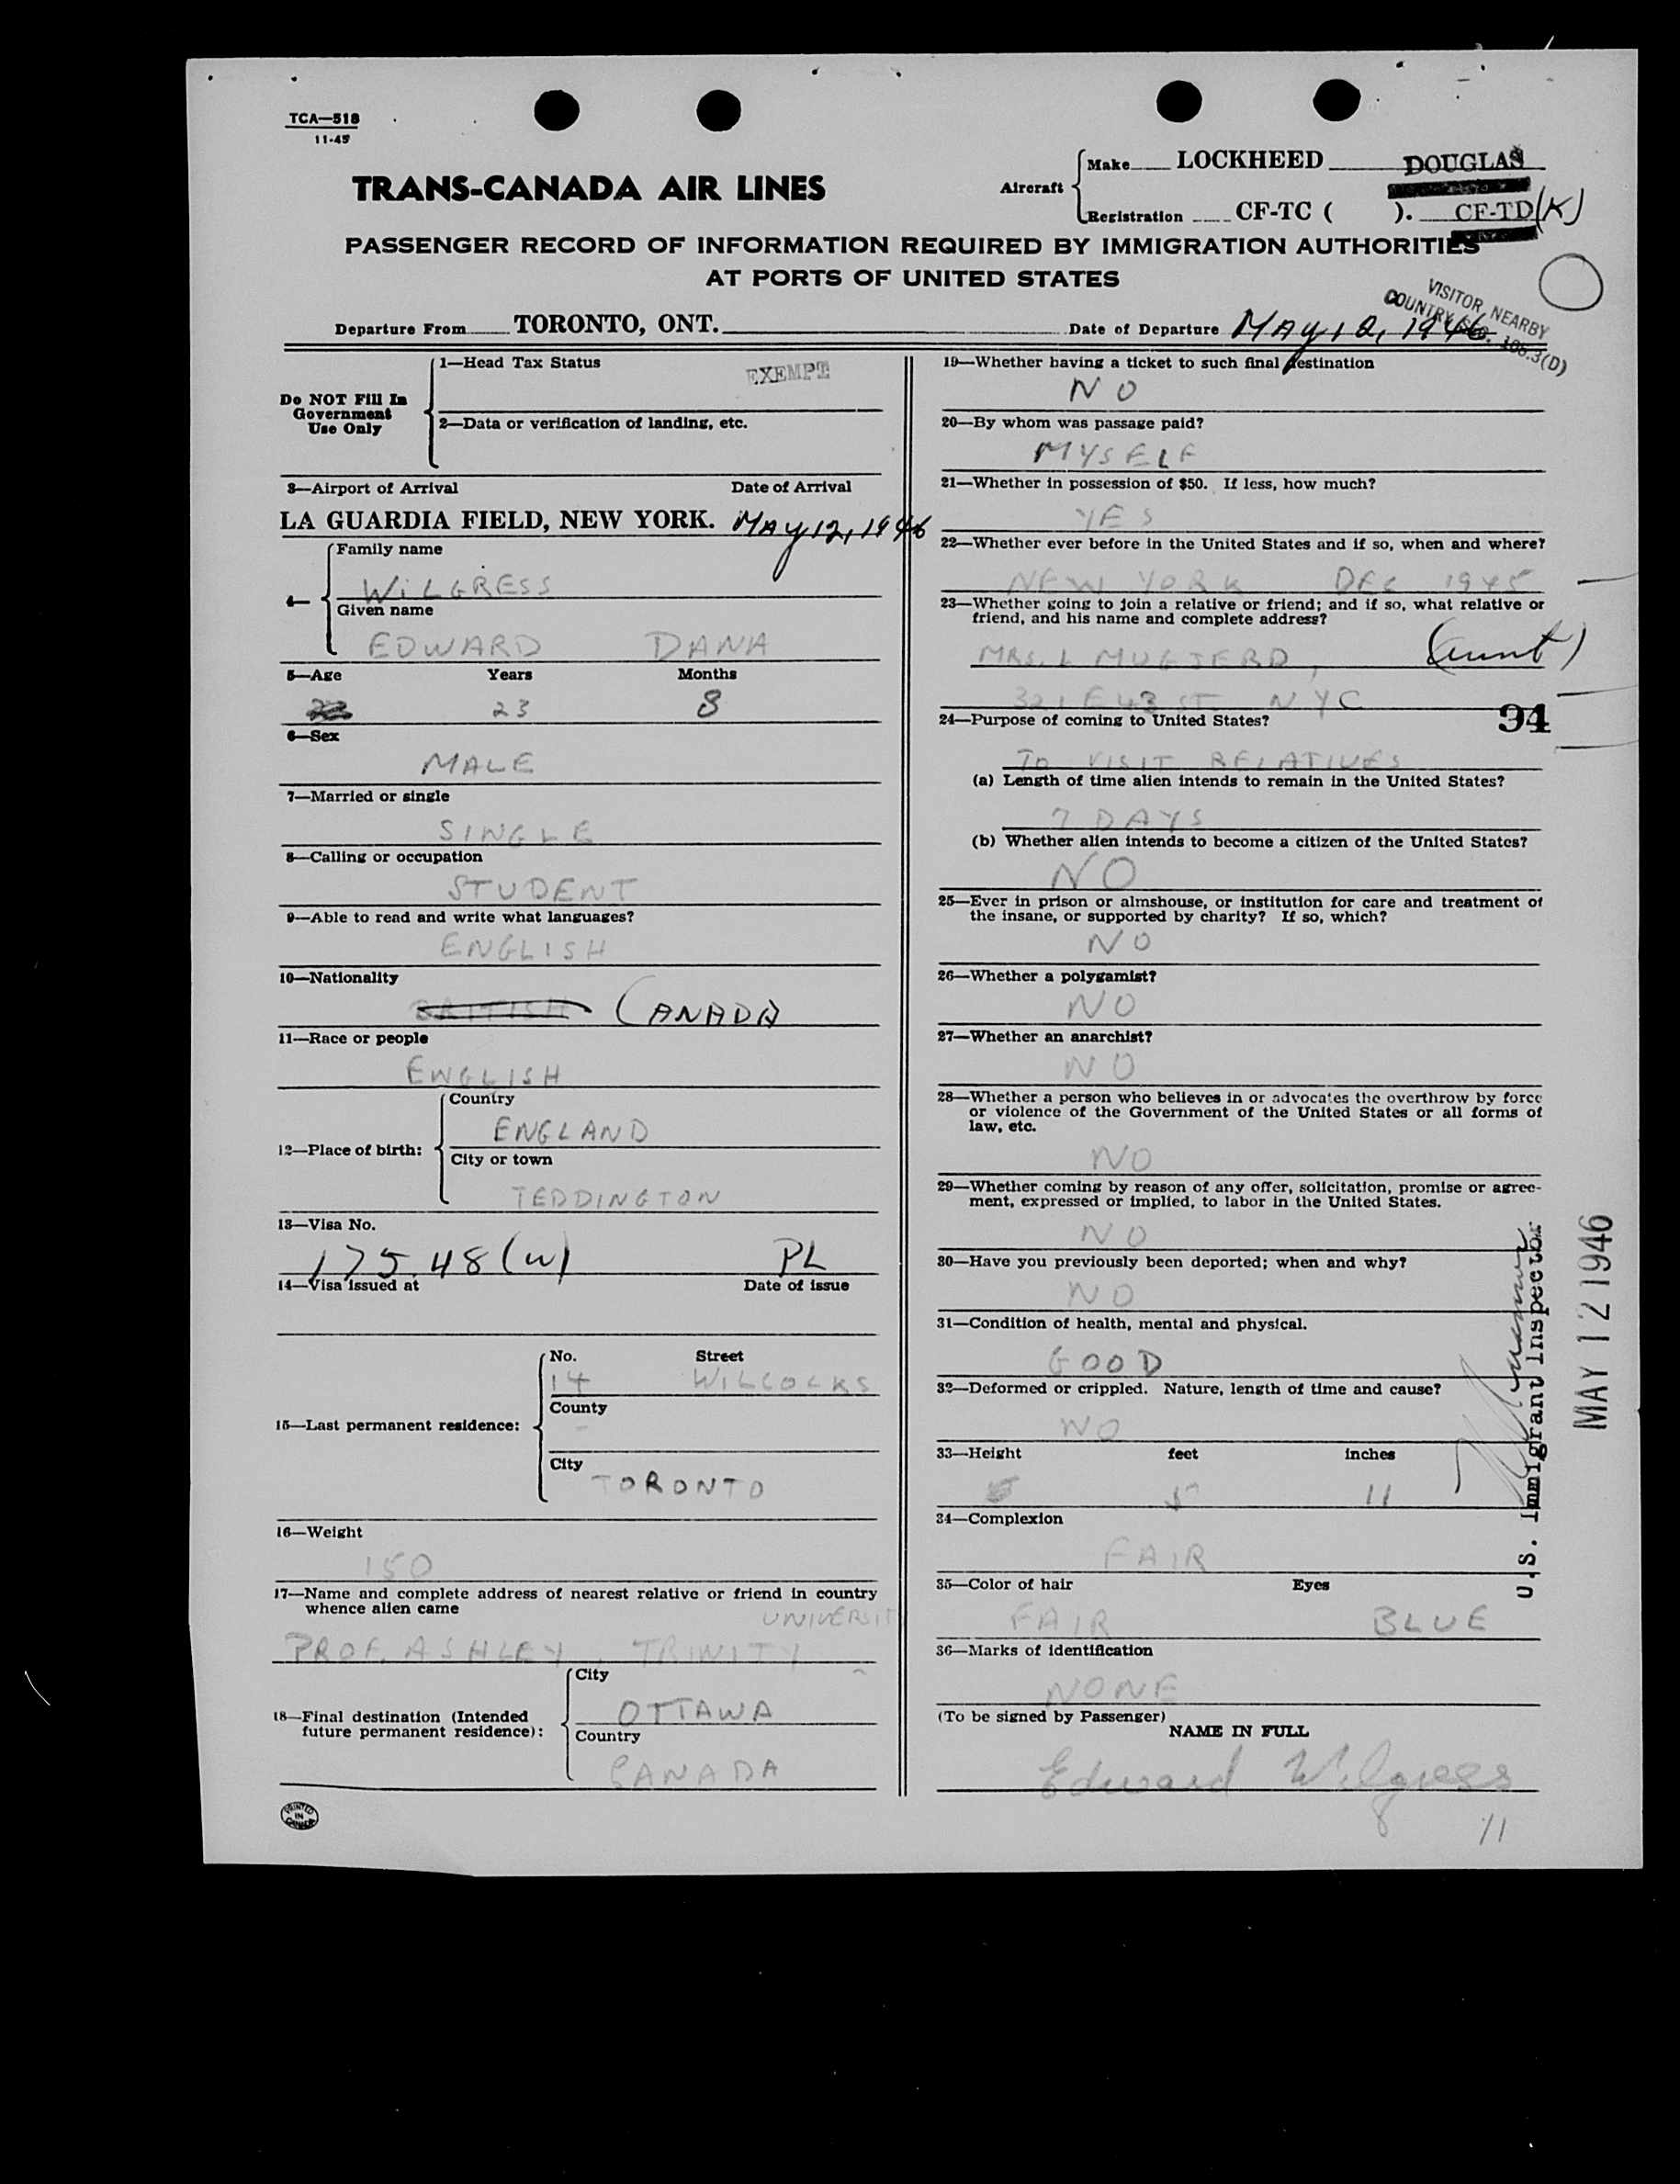 TCA—518
11-45
TRANS-CANADA AIR LINES
Aircraft
Make LOCKHEED DOUGLAS
Registration CF-TC ( ). CF-TD (K)
PASSENGER RECORD OF INFORMATION REQUIRED BY IMMIGRATION AUTHORITIES
AT PORTS OF UNITED STATES
VISITOR NEARBY
COUNTRY
Departure From TORONTO, ONT. Date of Departure MAY 12, 1946
Do NOT Fill In
Government
Use Only
1—Head Tax Status EXEMPT
2—Data or verification of landing, etc.
3—Airport of Arrival Date of Arrival
LA GUARDIA FIELD, NEW YORK. MAY 12, 1946
4—
Family name
WILGRESS
Given name
EDWARD DANA
5—Age Years Months
23 8
6—Sex
MALE
7—Married or single
SINGLE
8—Calling or occupation
STUDENT
9—Able to read and write what languages?
ENGLISH
10—Nationality
BRITISH CANADA
11—Race or people
ENGLISH
12—Place of birth:
Country
ENGLAND
City or town
TEDDINGTON
13—Visa No.
175.48 (W) PL
14—Visa issued at Date of issue
15—Last permanent residence:
No. Street
14 WILLCOCKS
County
-
City
TORONTO
16—Weight
150
17—Name and complete address of nearest relative or friend in country
whence alien came
UNIVERSIT
PROF. ASHLEY, TRINITY
18—Final destination (Intended
future permanent residence):
City
OTTAWA
Country
CANADA
PRINTED
IN
CANADA
19—Whether having a ticket to such final destination
NO
20—By whom was passage paid?
MYSELF
21—Whether in possession of $50. If less, how much?
YES
22—Whether ever before in the United States and if so, when and where?
NEW YORK DEC 1945
23—Whether going to join a relative or friend; and if so, what relative or
friend, and his name and complete address?
MRS. L (aunt)
321 E 43 ST. NYC
94
24—Purpose of coming to United States?
TO VISIT RELATIVES
(a) Length of time alien intends to remain in the United States?
7 DAYS
(b) Whether alien intends to become a citizen of the United States?
NO
25—Ever in prison or almshouse, or institution for care and treatment of
the insane, or supported by charity? If so, which?
NO
26—Whether a polygamist?
NO
27—Whether an anarchist?
NO
28—Whether a person who believes in or advocates the overthrow by force
or violence of the Government of the United States or all forms of
law, etc.
NO
29—Whether coming by reason of any offer, solicitation, promise or agree-
ment, expressed or implied, to labor in the United States.
NO
30—Have you previously been deported; when and why?
NO
31—Condition of health, mental and physical.
GOOD
32—Deformed or crippled. Nature, length of time and cause?
NO
33—Height feet inches
5 11
34—Complexion
FAIR
35—Color of hair Eyes
FAIR BLUE
36—Marks of identification
NONE
(To be signed by Passenger)
NAME IN FULL
Edward Wilgress
11
U.S. Immigrant Inspector
MAY 12 1946